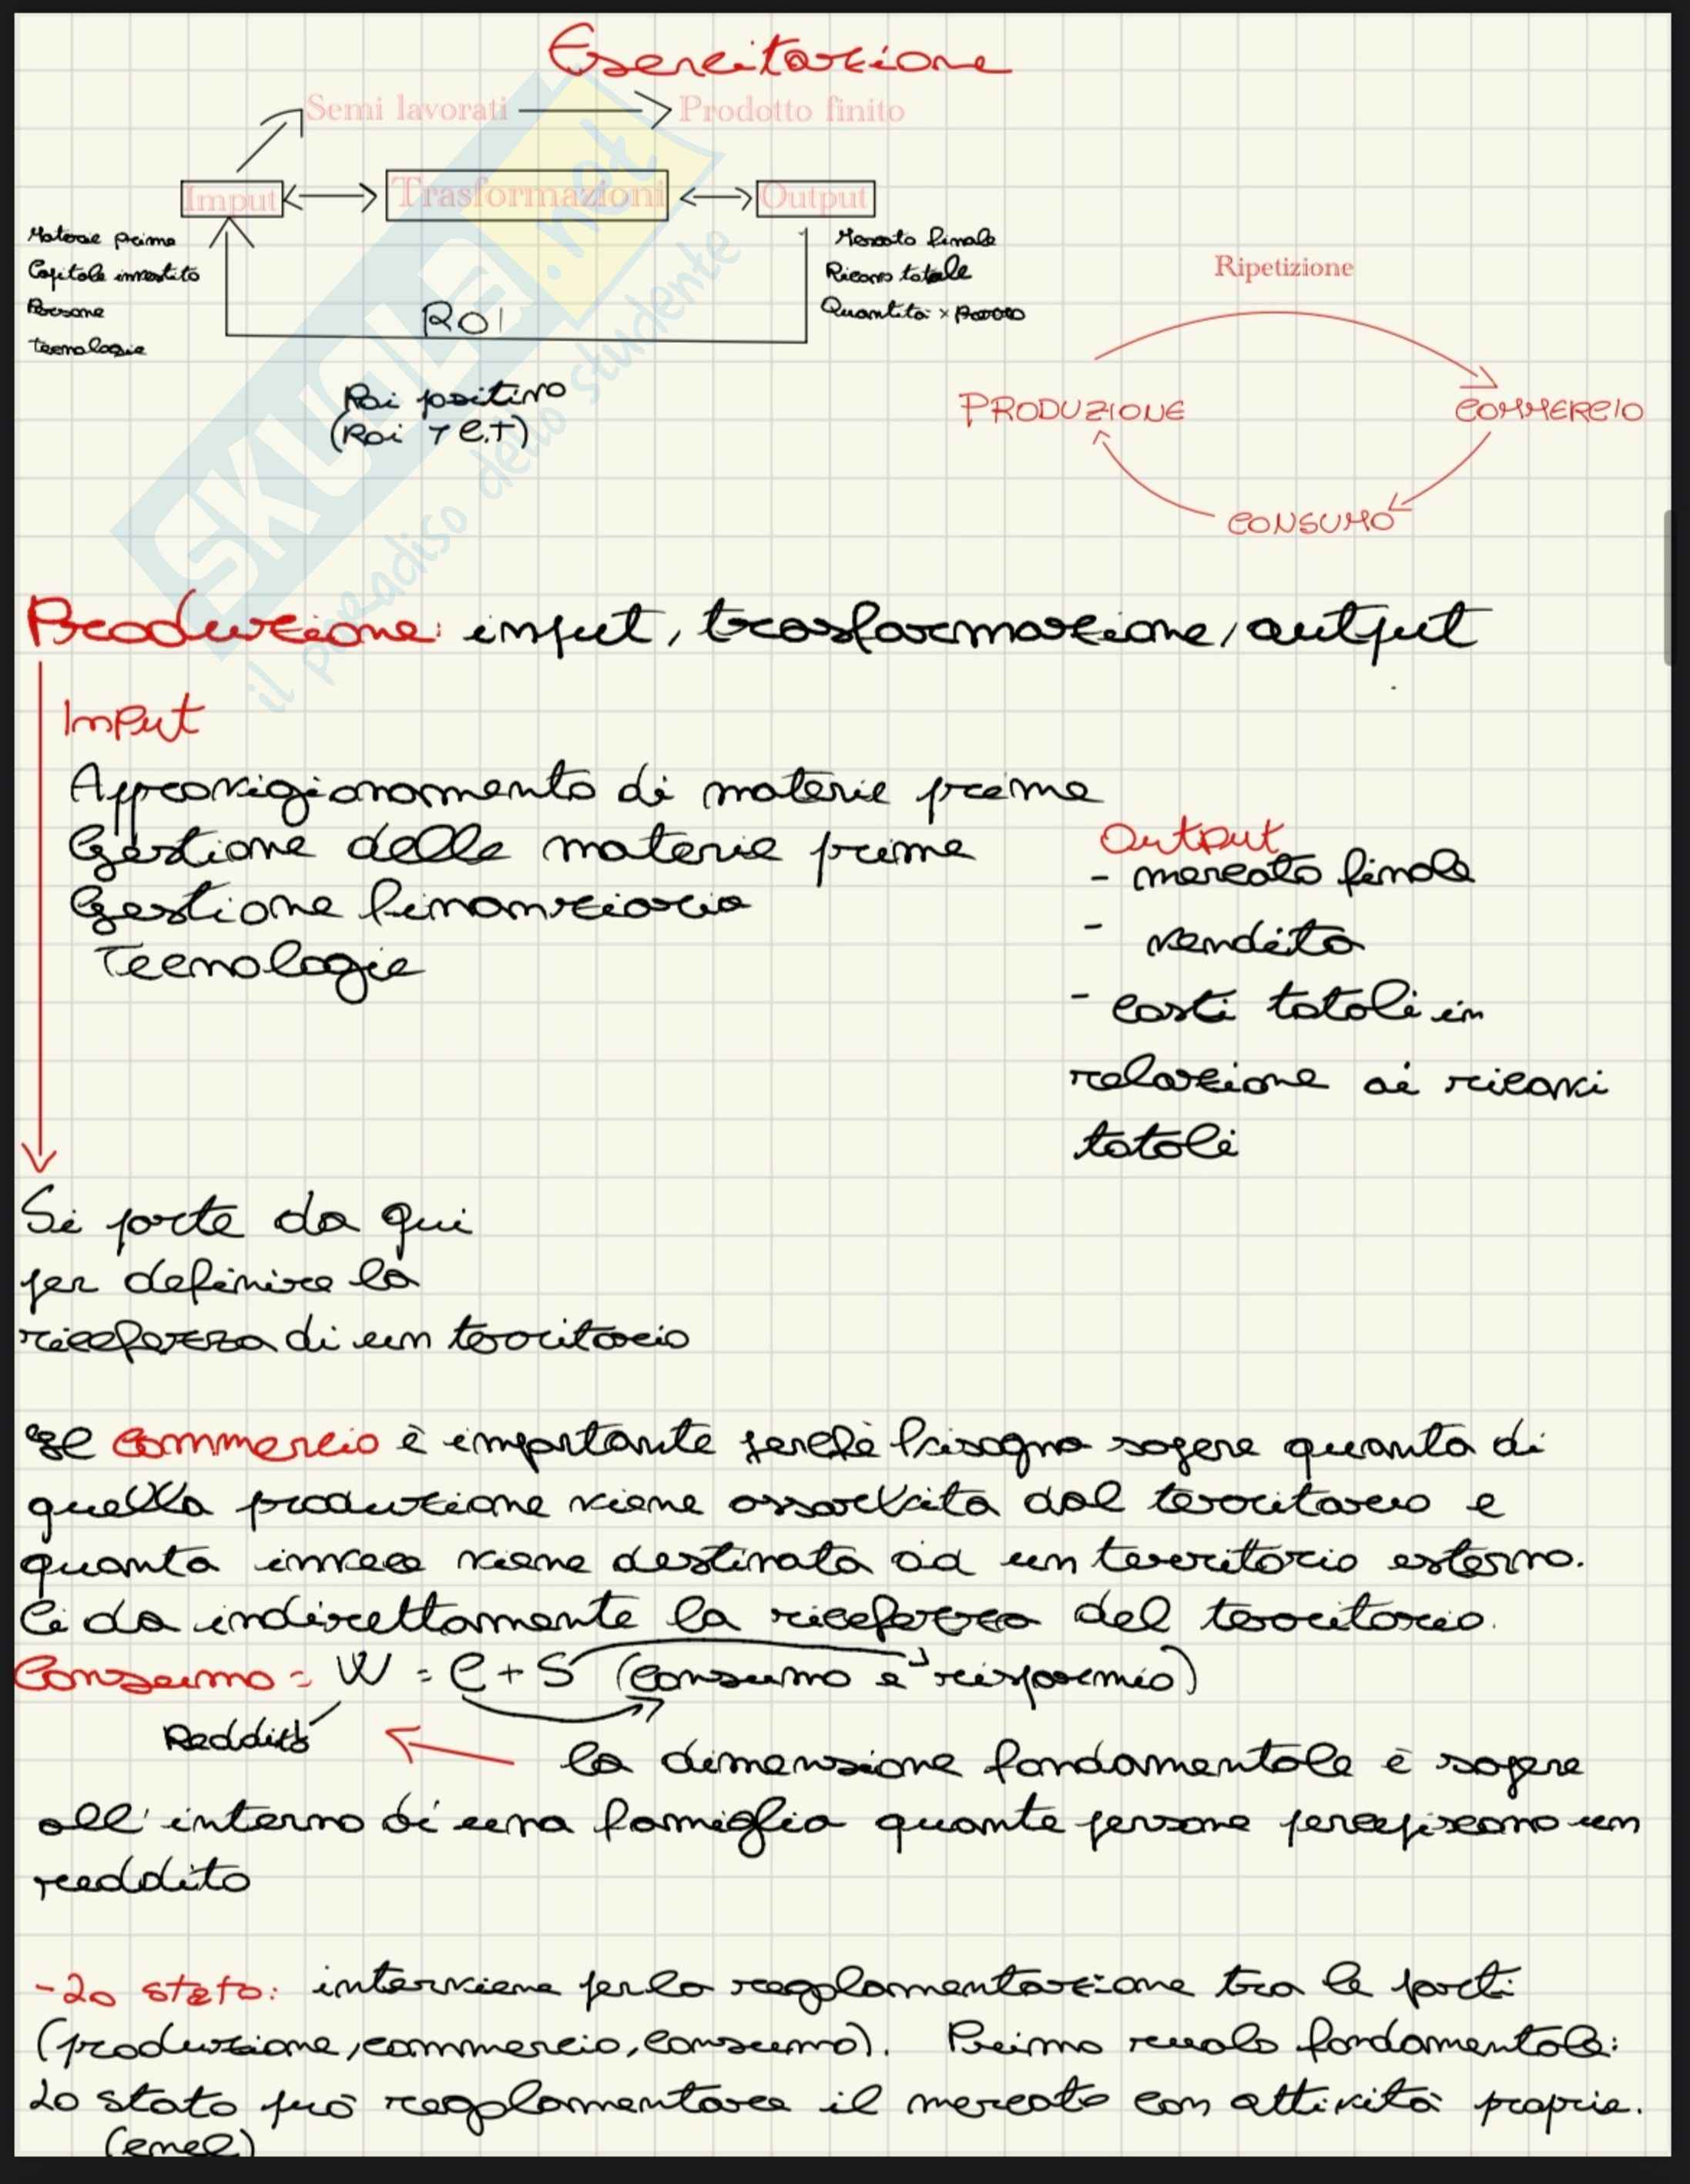 Esercitazione
Semi lavorati Prodotto finito
Imput Trasformazioni Output
Materie prime
Capitale investito
Persone
tecnologie
Mercato finale
Ricavo totale
Quantità x prezzo
ROI
Roi positivo
(Roi > C.T)
Ripetizione
PRODUZIONE COMMERCIO
CONSUMO
SKUOLA.net
il paradiso dello studente
Produzione: input, trasformazione, output
Input
Approvigionamento di materie prime
Gestione delle materie prime
Gestione finanziaria
Tecnologie
Output
- mercato finale
- vendita
- costi totali in
relazione ai ricavi
totali
Si parte da qui
per definire la
ricchezza di un territorio
Il commercio è importante perchè bisogna sapere quanta di
quella produzione viene assorbita dal territorio e
quanta invece viene destinata ad un territorio esterno.
Ci da indirettamente la ricchezza del territorio.
Consumo = W = C + S (consumo e risparmio)
Reddito
la dimensione fondamentale è sapere
all'interno di una famiglia quante persone percepiscono un
reddito
- Lo stato: interviene per la regolamentazione tra le parti
(produzione, commercio, consumo). Primo ruolo fondamentale:
Lo stato può regolamentare il mercato con attività proprie.
(enel)